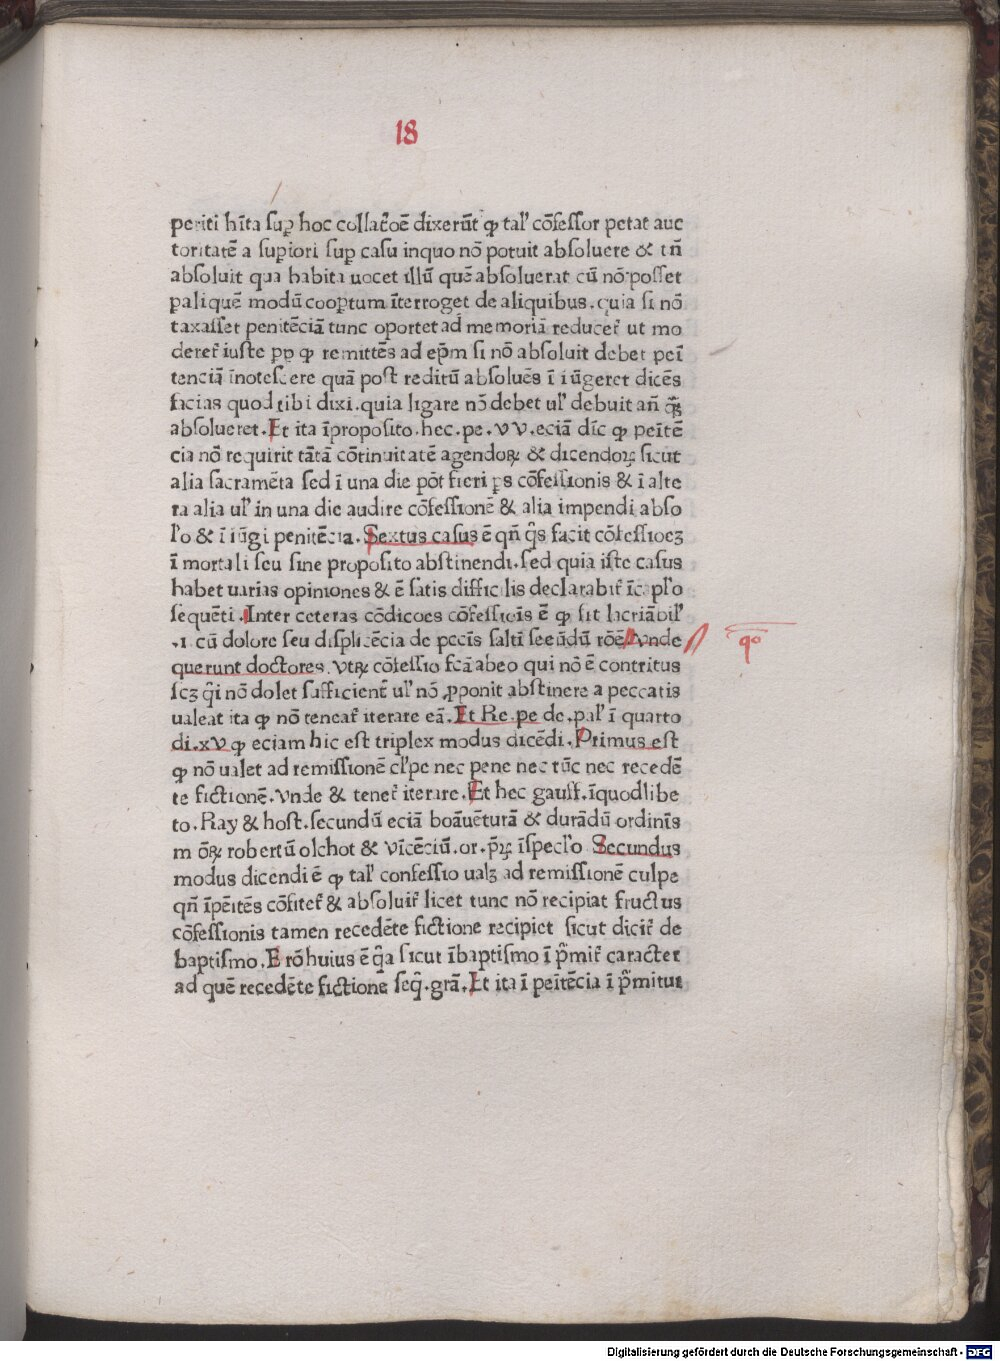 18
periti hīta sup̲ hoc collat̄oē dixerūt ꝙ tal' cōfessor petat auc
toritatē a sup̲iori sup̲ casu inquo nō potuit absoluere & tn̄
absoluit qua habita uocet illū quē absoluerat cū nō posset
p̲ aliquē modū cooptum īterroget de aliquibus. quia si nō
taxasset penitēciā tunc oportet ad memoriā reducer̄ ut mo
deret̄ iuste pp̲ ꝙ remittēs ad ep̄m si nō absoluit debet peī
tenciā īnotescere quā post reditū absoluēs ī iūgeret dicēs
facias quod tibi dixi. quia ligare nō debet ul' debuit an̄ ꝙ̄
absolueret. Et ita īproposito. hec. pe. VV. eciā dīc ꝙ peītē
cia nō requirit tātā cōtinuitatē agendoꝝ & dicendoꝝ sicut
alia sacramēta sed ī una die pōt fieri ps cōfessionis & ī alte
ra alia ul' in una die audire cōfessionē & alia impendi abso
l'o & ī iūgi penitēcia. Sextus casus ē qn̄ q̄s facit cōfessioeꝫ
ī mortali seu sine proposito abstinendi. sed quia iste casus
habet uarias opiniones & ē satis difficilis declarabit̄ īcapl'o
sequēti. Inter ceteras cōdicoes cōfessiōis ē ꝙ sit lacriābil'
.i. cū dolore seu displicēcia de pccīs saltī secūdū rōē. Vnde
querunt doctores. Vtꝝ cōfessio fcā abeo qui nō ē contritus
scꝫ q̄i nō dolet sufficient̄ ul' nō ꝓponit abstinere a peccatis
ualeat ita ꝙ nō teneat̄ iterare eā. Et Re. pe de. pal' ī quarto
di. xV ꝙ eciam hic est triplex modus dicēdi. Primus est
ꝙ nō ualet ad remissionē cl'pe nec pene nec tūc nec recedē
te fictionē. Vnde & tenet̄ iterare. Et hec gauff. īquodlibe
to. Ray & host. secundū eciā boāuēturā & durādū ordinīs
m oꝝ robertū olchot & Vīcēciū. or. p̄ꝝ īspecl'o Secundus
modus dicendi ē ꝙ tal' confessio ualꝫ ad remissionē culpe
qn̄ īpēitēs cōfitet̄ & absoluit̄ licet tunc nō recipiat fructus
cōfessionis tamen recedēte fictione recipiet sicut dicit̄ de
baptismo. E rō huius ē q̄a sicut ībaptismo ī p̄mit̄ caracter
ad quē recedēte fictione seq̄. grā. Et ita ī peītēcia ī p̄mitur
q̄o
Digitalisierung gefördert durch die Deutsche Forschungsgemeinschaft - DFG